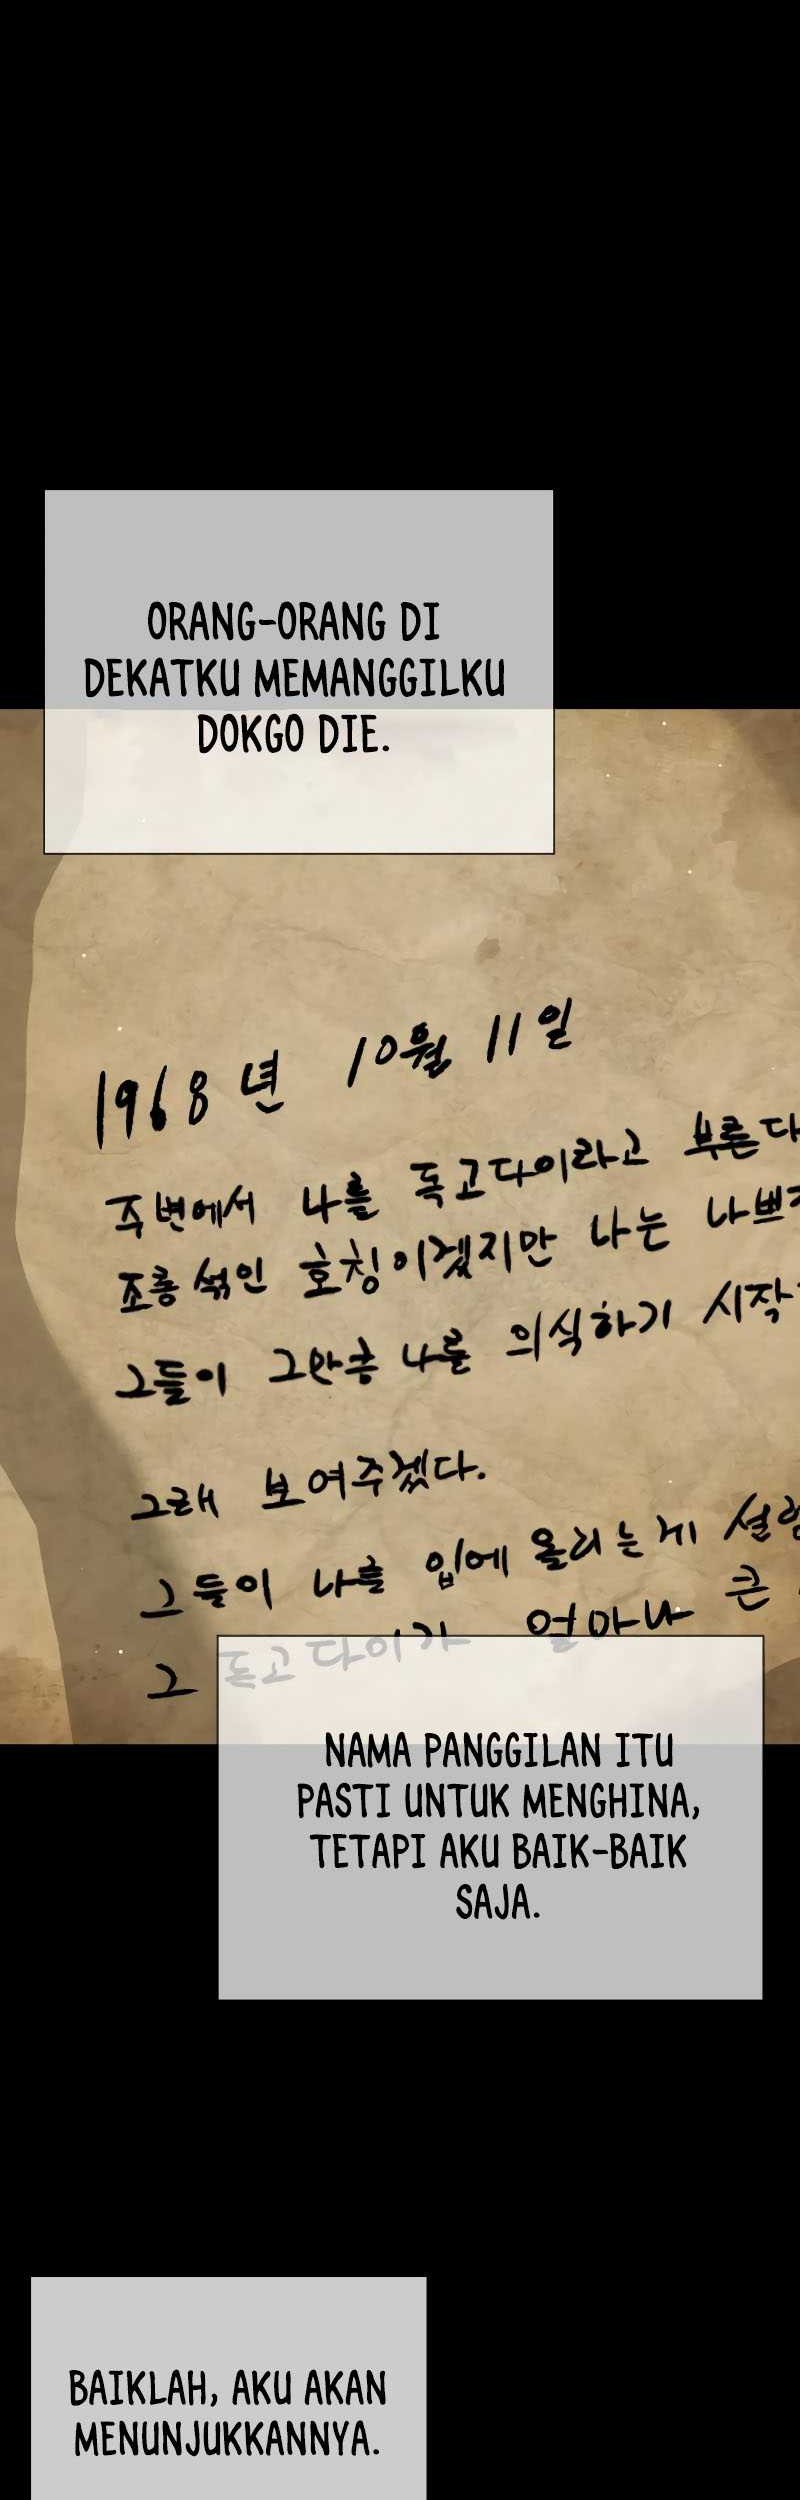 ORANG-ORANG DI
DEKATKU MEMANGGILKU
DOKGO DIE.
1968년 10월 11일
주변에서 나를 독고다이라고 부른다
조롱 섞인 호칭이겠지만 나는
그들이 그만큼 나를 의식하기 시작
그래 보여주겠다.
그들이 나를 입에 올리는게
그 독고다이가 얼마나 큰
NAMA PANGGILAN ITU
PASTI UNTUK MENGHINA,
TETAPI AKU BAIK-BAIK
SAJA.
BAIKLAH, AKU AKAN
MENUNJUKKANNYA.